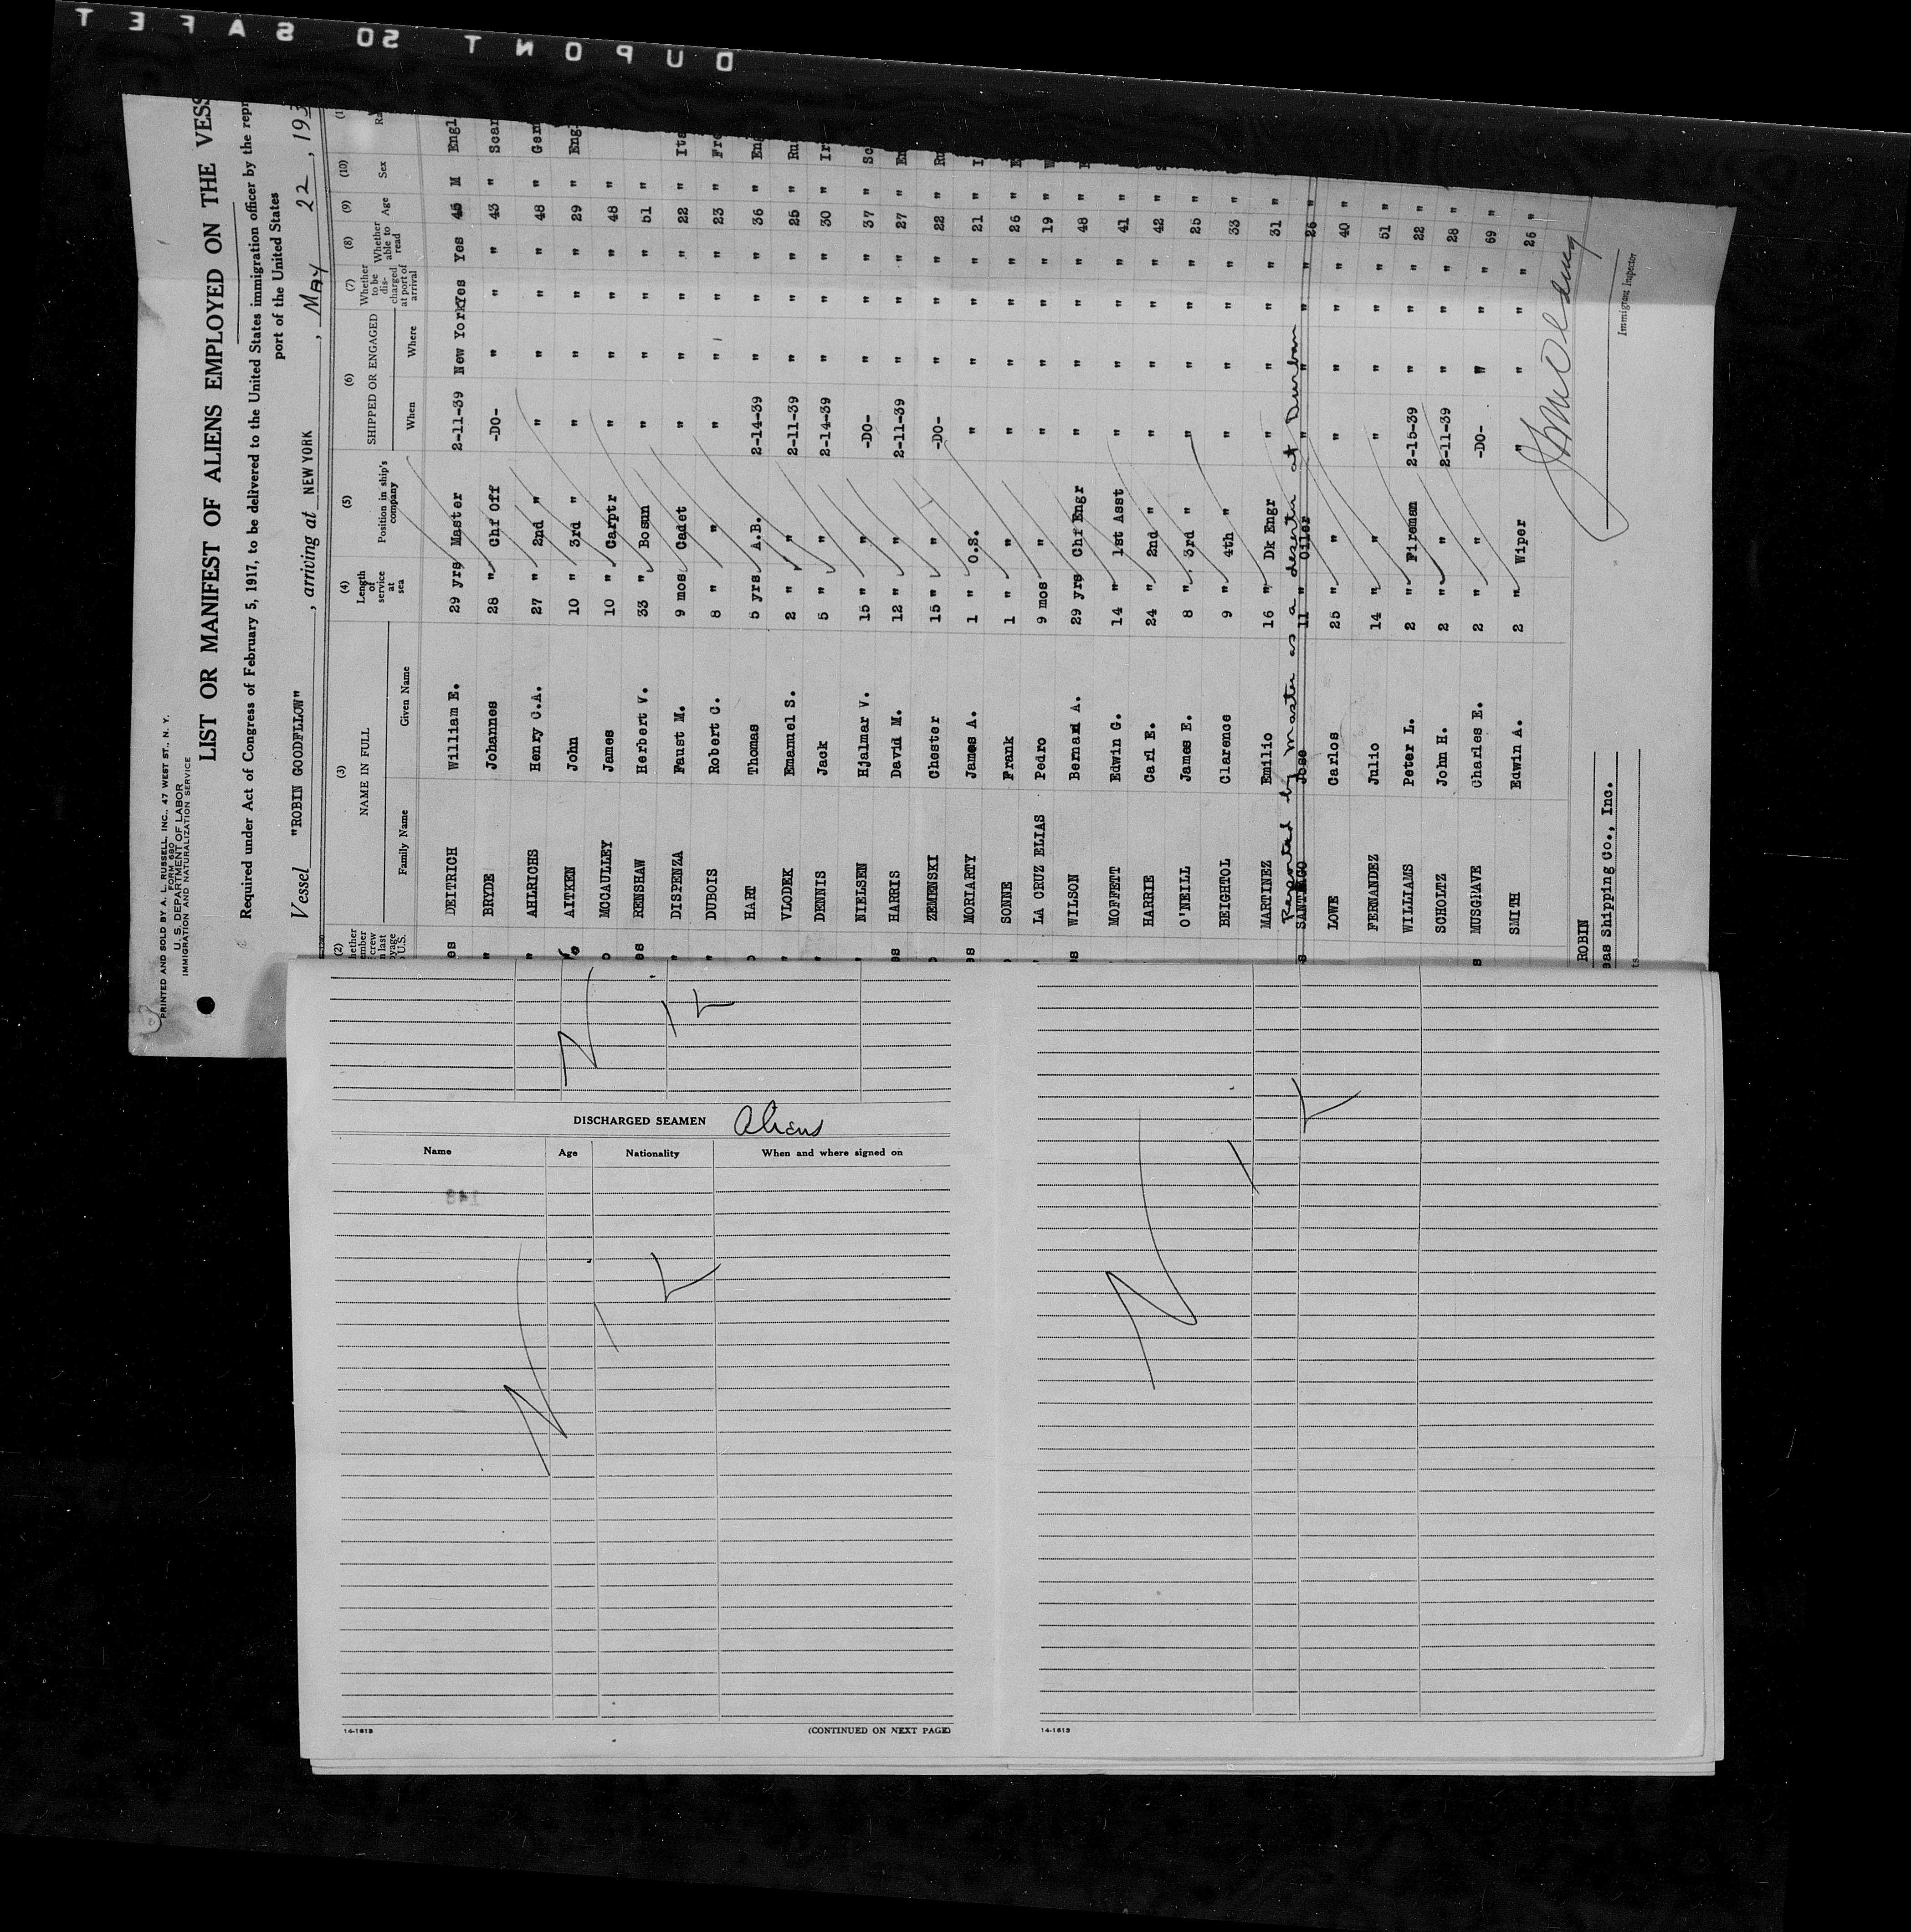 PRINTED AND SOLD BY A. L. RUSSELL, INC., 47 WEST ST., N. Y.
FORM 680
U. S. DEPARTMENT OF LABOR
IMMIGRATION AND NATURALIZATION SERVICE
LIST OR MANIFEST OF ALIENS EMPLOYED ON THE VESS
Required under Act of Congress of February 5, 1917, to be delivered to the United States immigration officer by the repr
port of the United States
Vessel "ROBIN GOODFLLOW", arriving at NEW YORK, May 22, 193
(2) (3) (4) (5) (6) (7) (8) (9) (10)
NAME IN FULL Length of service at sea Position in ship's company SHIPPED OR ENGAGED Whether to be discharged at port of arrival Whether able to read Age Sex
Family Name Given Name When Where
es DEITRICH William E. 29 yrs Master 2-11-39 New York Yes Yes 45 M Engl
" BRYDE Johannes 28 " Chf Off -DO- " " " 43 " Scan
" AHLRICHS Henry C.A. 27 " 2nd " " " " " 48 " Ger
AITKEN John 10 " 3rd " " " " " 29 " Eng
o MCCAULLEY James 10 " Carptr " " " " 48 "
es RENSHAW Herbert V. 33 " Bosun " " " " 51 "
" DISPENZA Faust M. 9 mos Cadet " " " " 22 " Ita
" DUBOIS Robert C. 8 " " " " " " 23 " Fre
o HART Thomas 5 yrs A.B. 2-14-39 " " " 36 " Eng
" VLODEK Emanuel S. 2 " " 2-11-39 " " " 25 " Ru
" DENNIS Jack 5 " " 2-14-39 " " " 30 " Ir
" NIELSEN Hjalmar V. 15 " " -DO- " " " 37 " Sc
es HARRIS David M. 12 " " 2-11-39 " " " 27 " En
o ZEMENSKI Chester 15 " " -DO- " " " 22 " Ru
es MORIARTY James A. 1 " O.S. " " " " 21 " I
SONNE Frank 1 " " " " " " 26 " E
" LA CRUZ ELIAS Pedro 9 mos " " " " " 19 " W
es WILSON Bernard A. 29 yrs Chf Engr " " " " 48 "
MOFFETT Edwin G. 14 " 1st Asst " " " " 41 "
HARRIE Carl E. 24 " 2nd " " " " " 42 "
O'NEILL James E. 8 " 3rd " " " " " 25 "
BEIGHTOL Clarence 9 " 4th " " " " " 33 "
MARTINEZ Emilio 16 " Dk Engr " " " " 31 "
Reported by Master as a deserter at Durban
s SANTIAGO Jose 11 " Oiler " " " " 26 "
LOWE Carlos 25 " " " " " " 40 "
FERNANDEZ Julio 14 " " " " " " 51 "
WILLIAMS Peter L. 2 " Fireman 2-15-39 " " " 22 "
SCHOLTZ John H. 2 " " 2-11-39 " " " 28 "
s MUSGRAVE Charles E. 2 " " -DO- " " " 69 "
SMITH Edwin A. 2 " Wiper " " " " 26 "
ROBIN
eas Shipping Co., Inc.
Immigrant Inspector
DISCHARGED SEAMEN Aliens
Name Age Nationality When and where signed on
14-1613
(CONTINUED ON NEXT PAGE)
14-1613
DUPONT SO SAFET